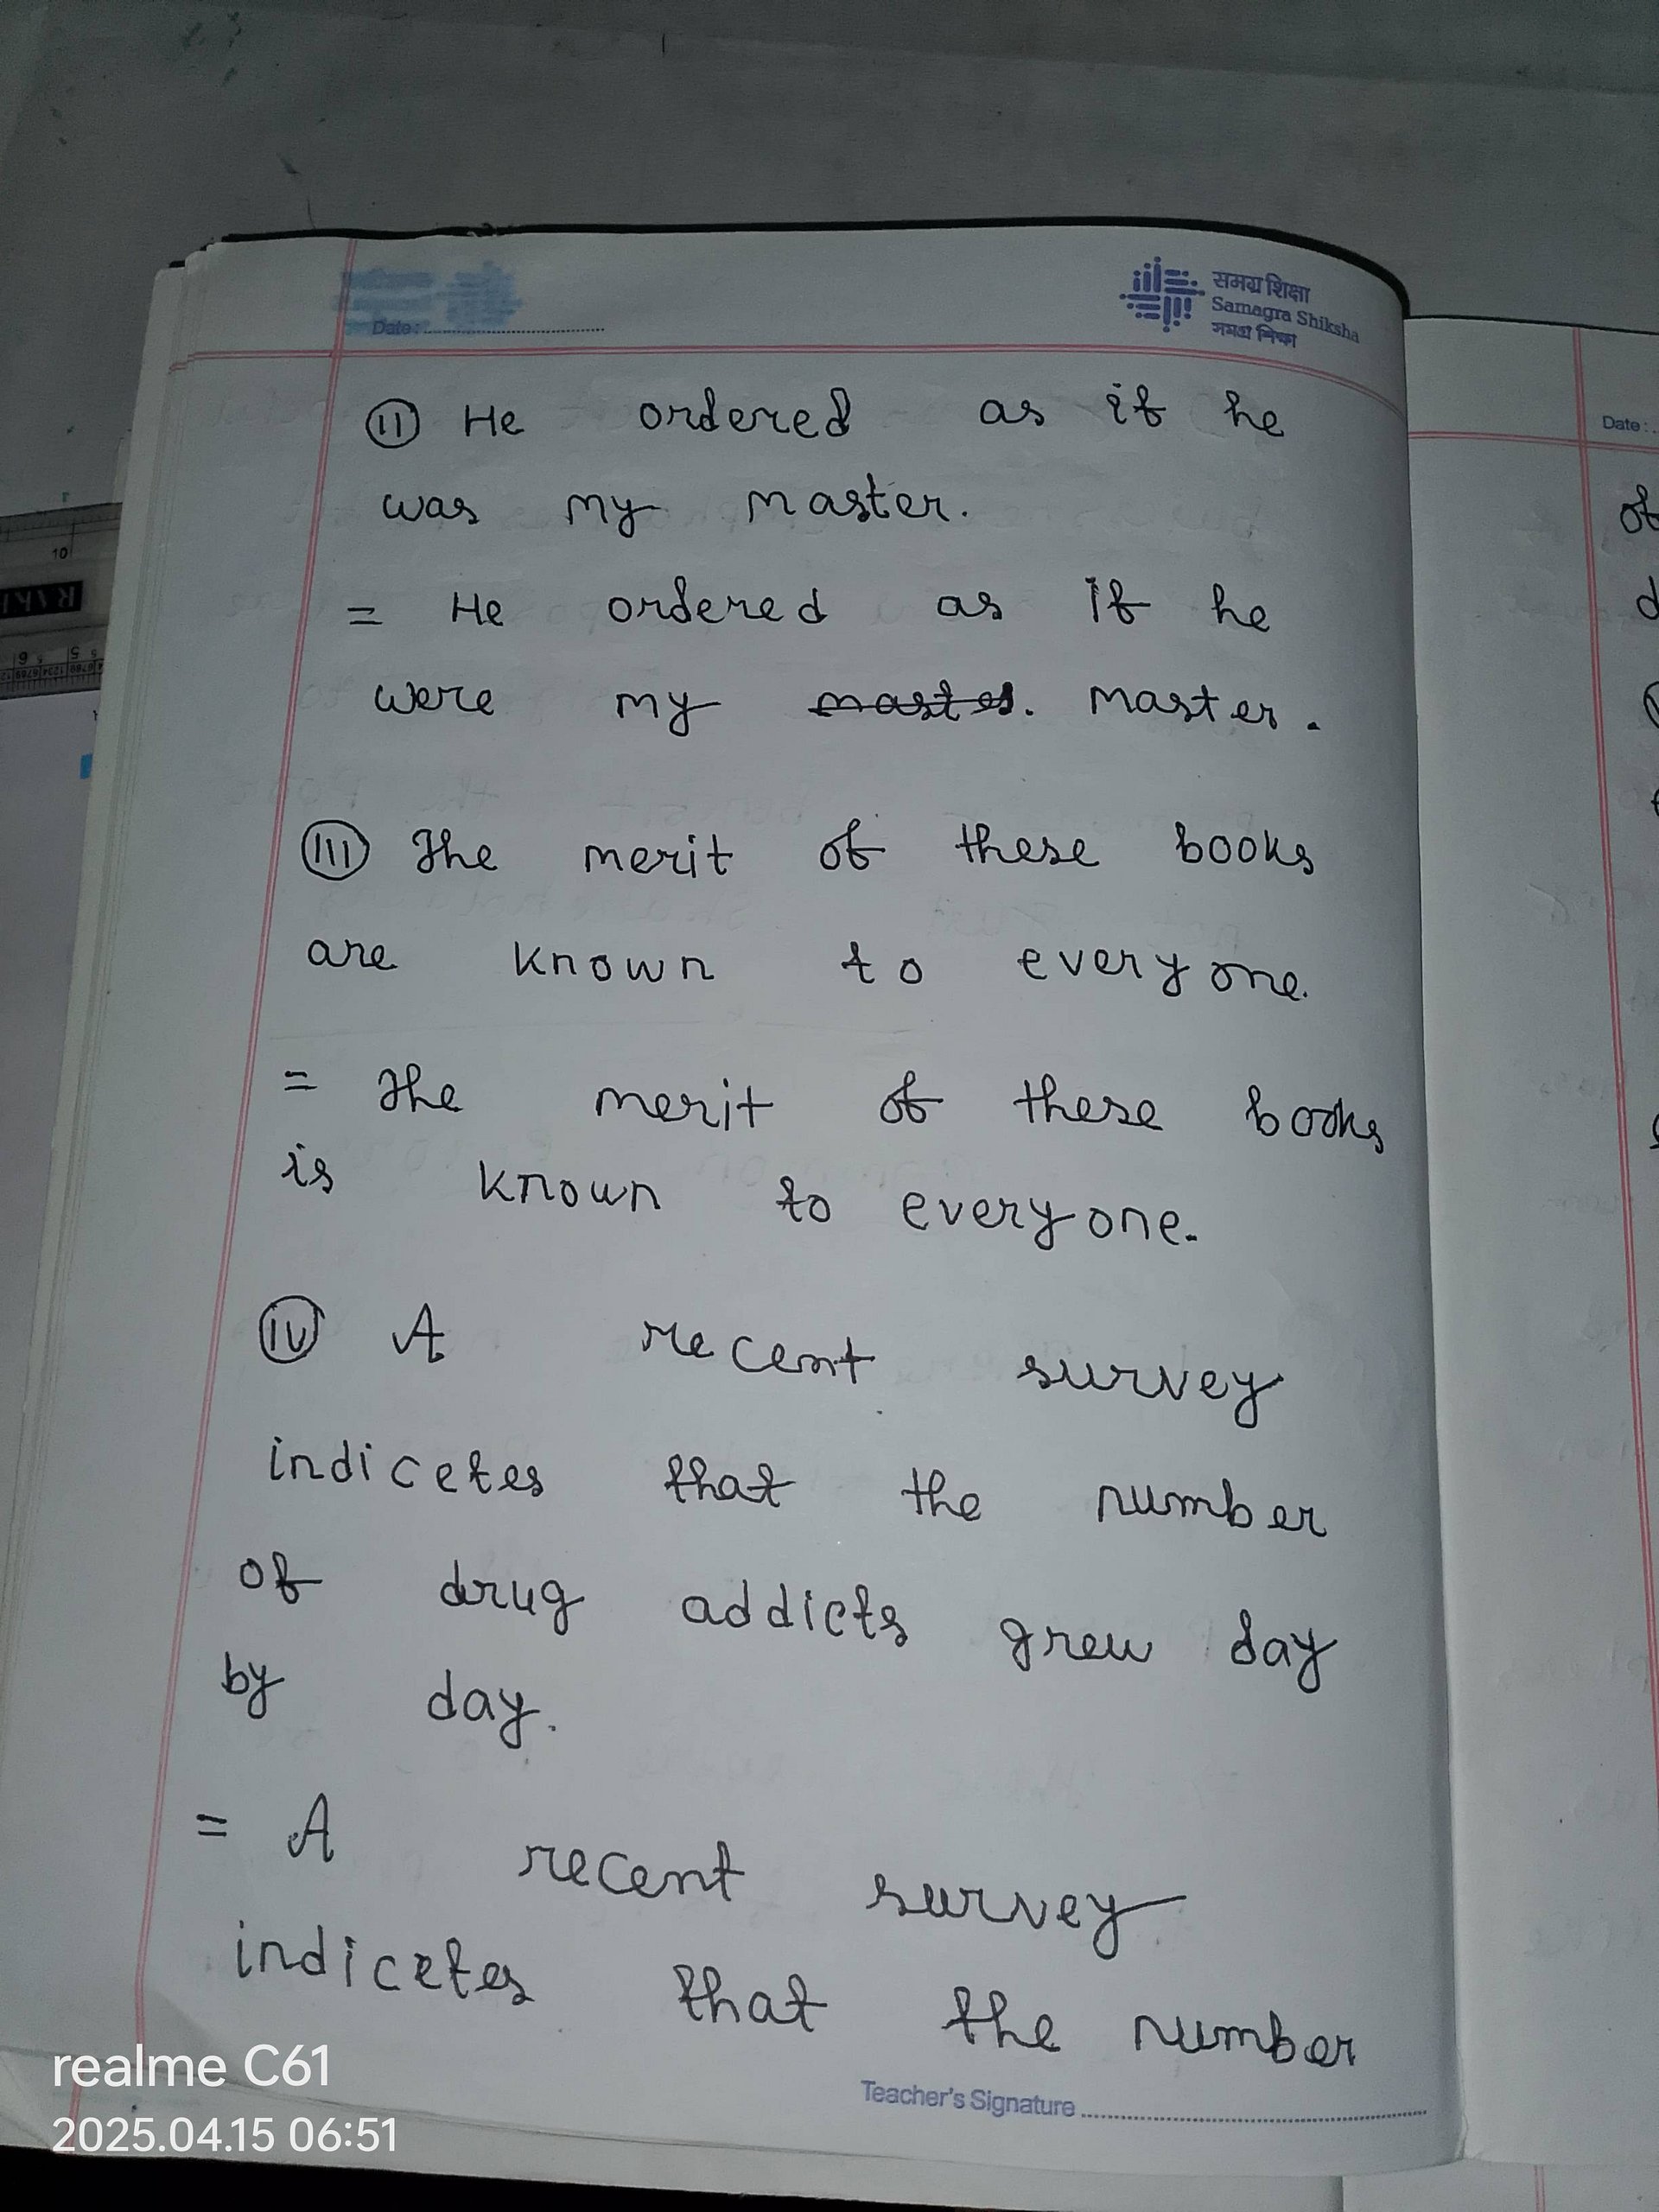 Date:
समग्र शिक्षा
Samagra Shiksha
সমগ্ৰ শিক্ষা
(II) He ordered as if he
was my master.
= He ordered as if he
were my master.
(III) The merit of these books
are known to everyone.
= The merit of these books
is known to everyone.
(IV) A recent survey
indicetes that the number
of drug addicts grew day
by day.
= A recent survey
indicetes that the number
Teacher's Signature
Date:
of
d
10
realme C61
2025.04.15 06:51